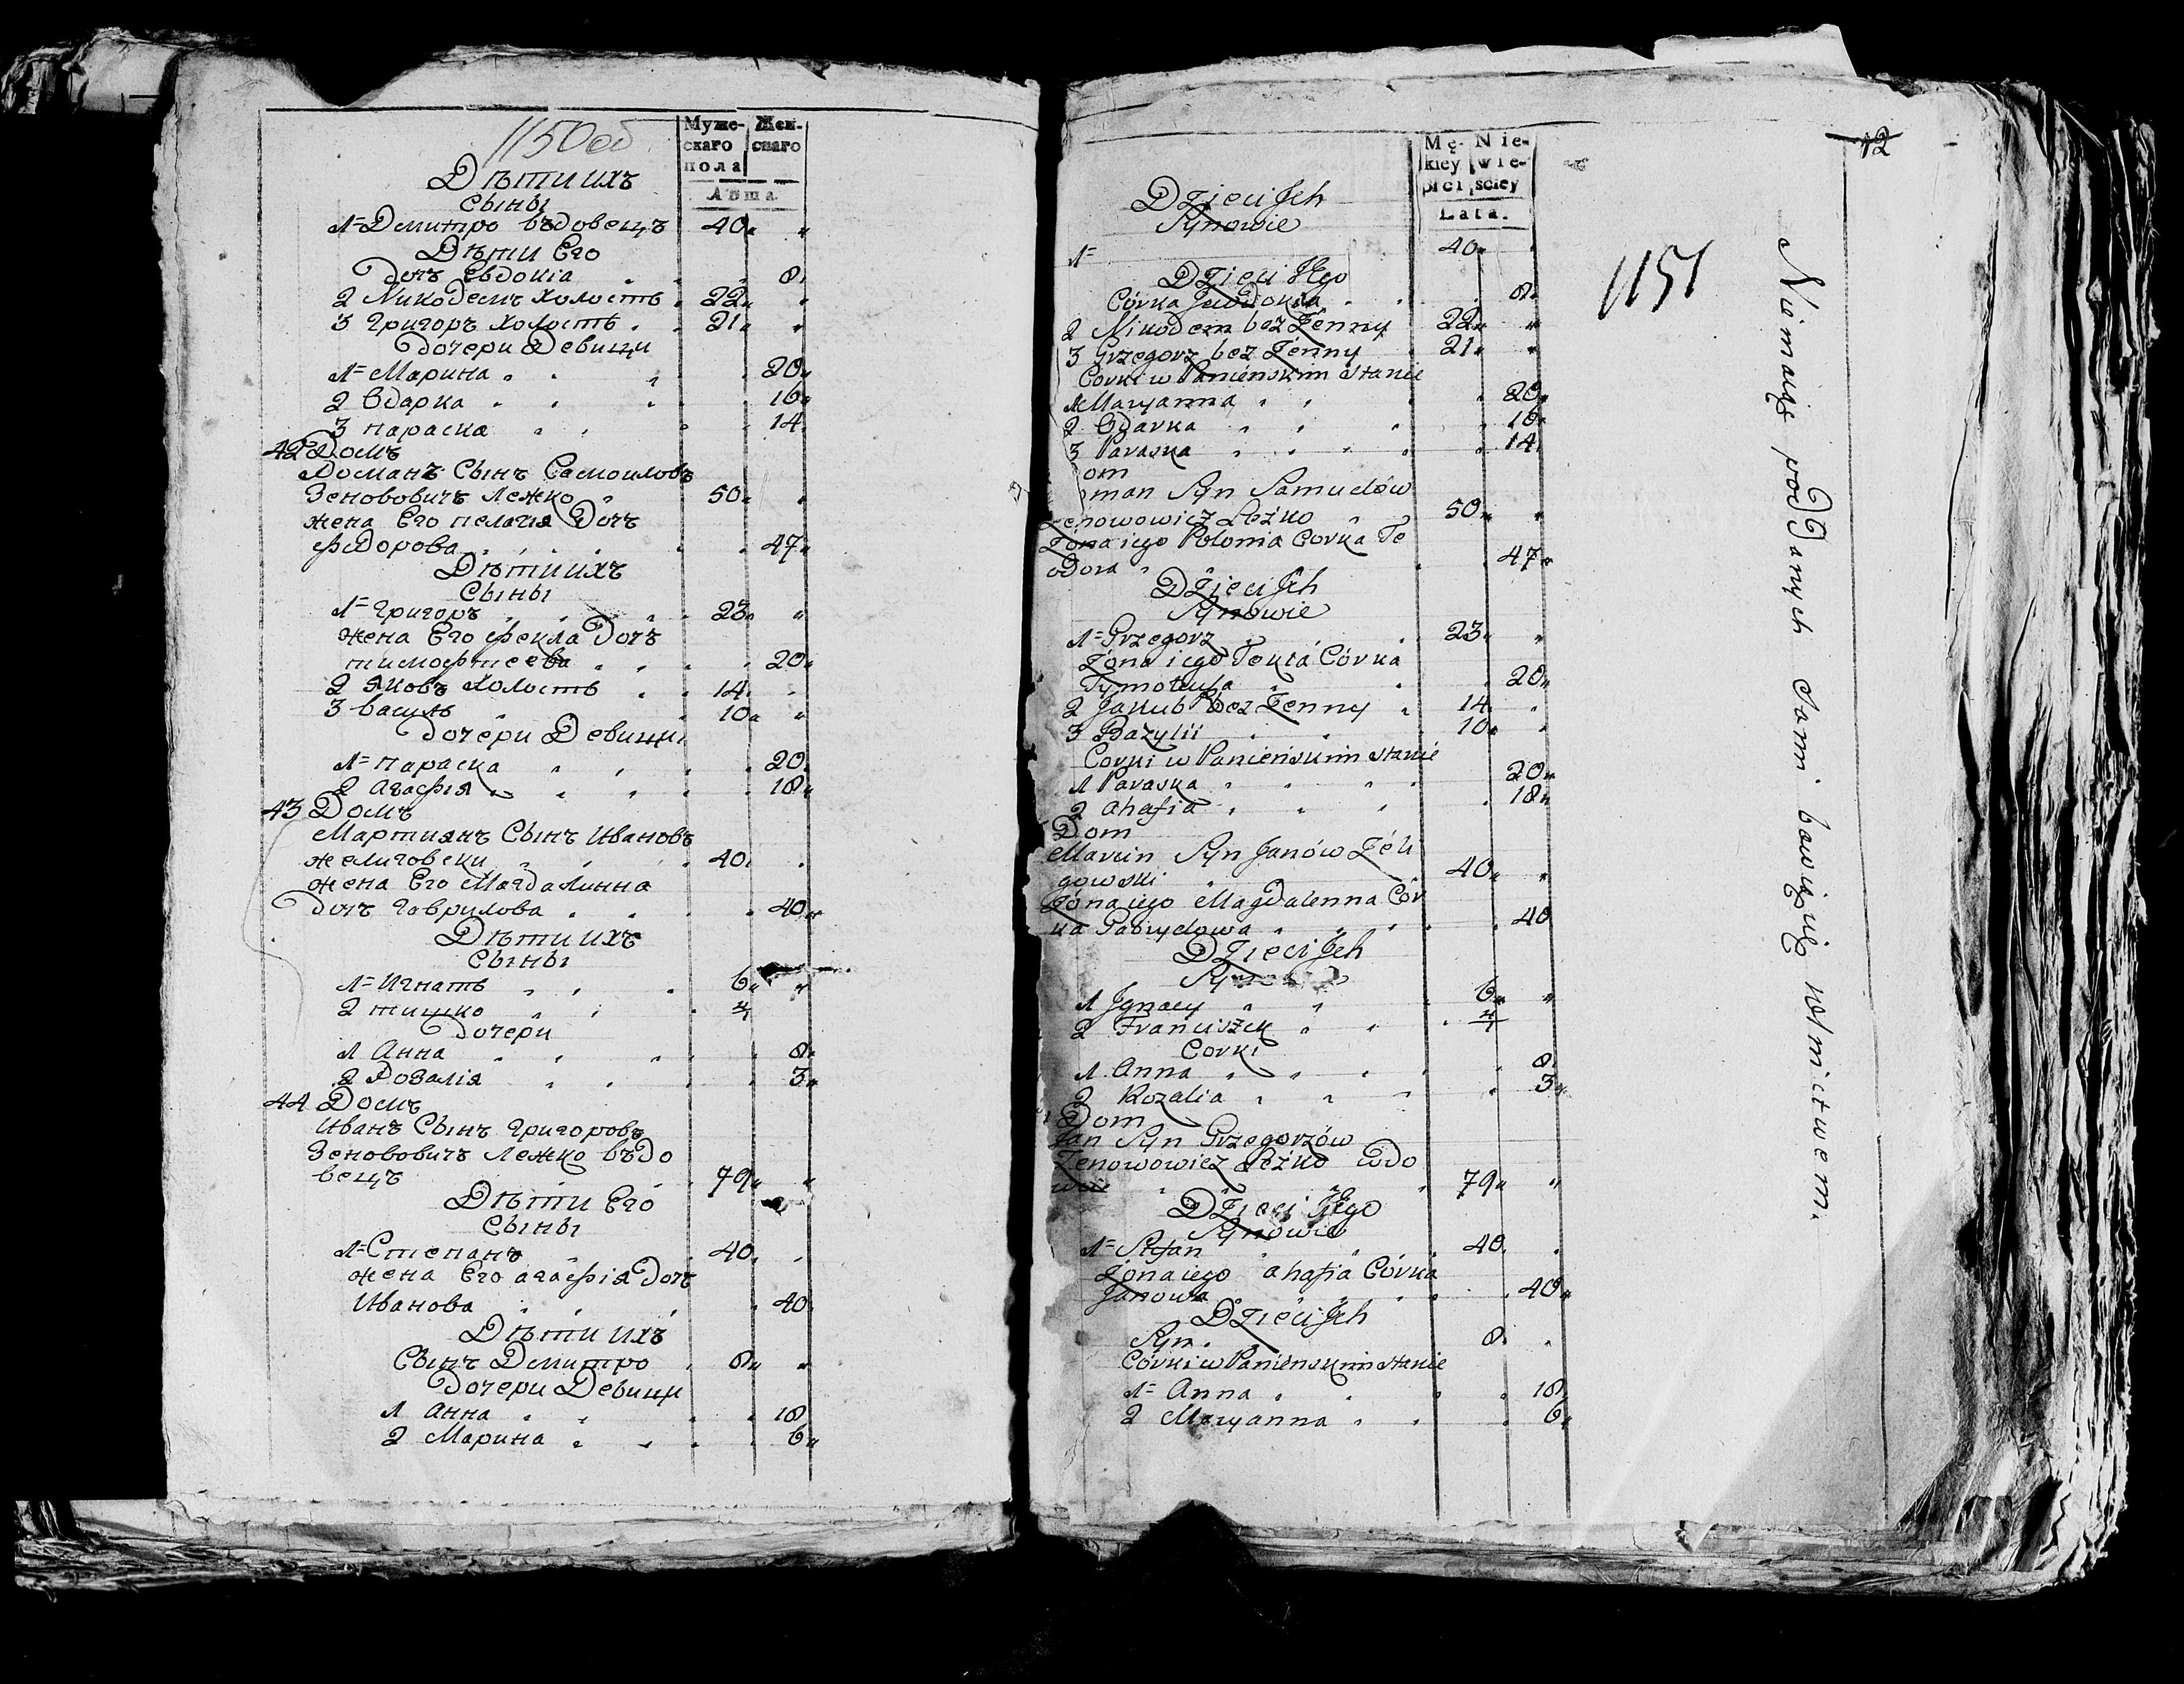 1150об
Муже- Жен-
скаго скаго
пола
Лѣта
Дѣти ихъ
Сыны
1 Дмитро въдовецъ 40
Дѣти Его
Дочь Евдокіа 8
2 Никодемъ холостъ 22
3 Григоръ холостъ 21
Дочери Девици
1 Марина 20
2 Одарка 16
3 параска 14
42 Домъ
Романъ Сынъ Самоиловъ
Зенововичъ Лежко 50
жена Его пелагія Дочь
федорова 47
Дѣти ихъ
Сыны
1 Григоръ 23
жена Его фекла Дочь
тимофтеева 20
2 яковъ холостъ 14
3 василь 10
Дочери Девици
1 параска 20
2 агафія 18
43 Домъ
Мартиянъ Сынъ Ивановъ
желиговски 40
жена Его Магдалинна
Дочь гаврилова 40
Дѣти ихъ
Сыны
1 Игнатъ 6
2 тишко
Дочери
1 Анна 8
2 Розалія 3
44 Домъ
Иванъ Сынъ григоровъ
Зенововичъ Лежко въдо
вецъ 79
Дѣти Его
Сыны
1 Степанъ 40
жена Его агафія Дочь
Иванова 40
Дѣти ихъ
Сынъ Дмитро 8
Дочери Девици
1 Анна 18
2 Марина 6
12
1151
Mę- Nie-
kiey wie-
płci sciey
Lata.
Dzieci Jch
Synowie
1 40
Dzieci Jego
Córka Jewdokia 8
2 Nikodem bez Zenny 22
3 Grzegorz bez Zenny 21
Corki w Panieńskim stanie
1 Maryanna 20
2 Odarka 16
3 Paraska 14
om
man Syn Samuelów
Zenowowicz Leżko 50
Zona iego Polonia Corka Te
odora 47
Dzieci Jch
Synowie
1 Grzegorz 23
Zona iego Tekla Córka
Tymoteusza 20
2 Jakub bez Zenny 14
3 Bazylii 10
Corki w Panieńskim stanie
1 Paraska 20
2 ahafia 18
Dom
Marcin Syn Janów Zeli
gowski 40
Zona iego Magdalenna Cór
ka Gabryelowa 40
Dzieci Jch
Synowie
1 Jgnacy 6
2 Franciszek
Corki
1 Anna 8
2 Rozalia 3
Dom
Jan Syn Grzegorzów
Zenowowicz Leżko wdo
wiec 79
Dzieci Jego
Synowie
1 Stefan 40
Zona iego ahafia Córka
Janowa 40
Dzieci Jch
Syn 8
Córki w Panienskim stanie
1 Anna 18
2 Maryanna 6
Nimaią poddanych sami bawią się kmictwem.